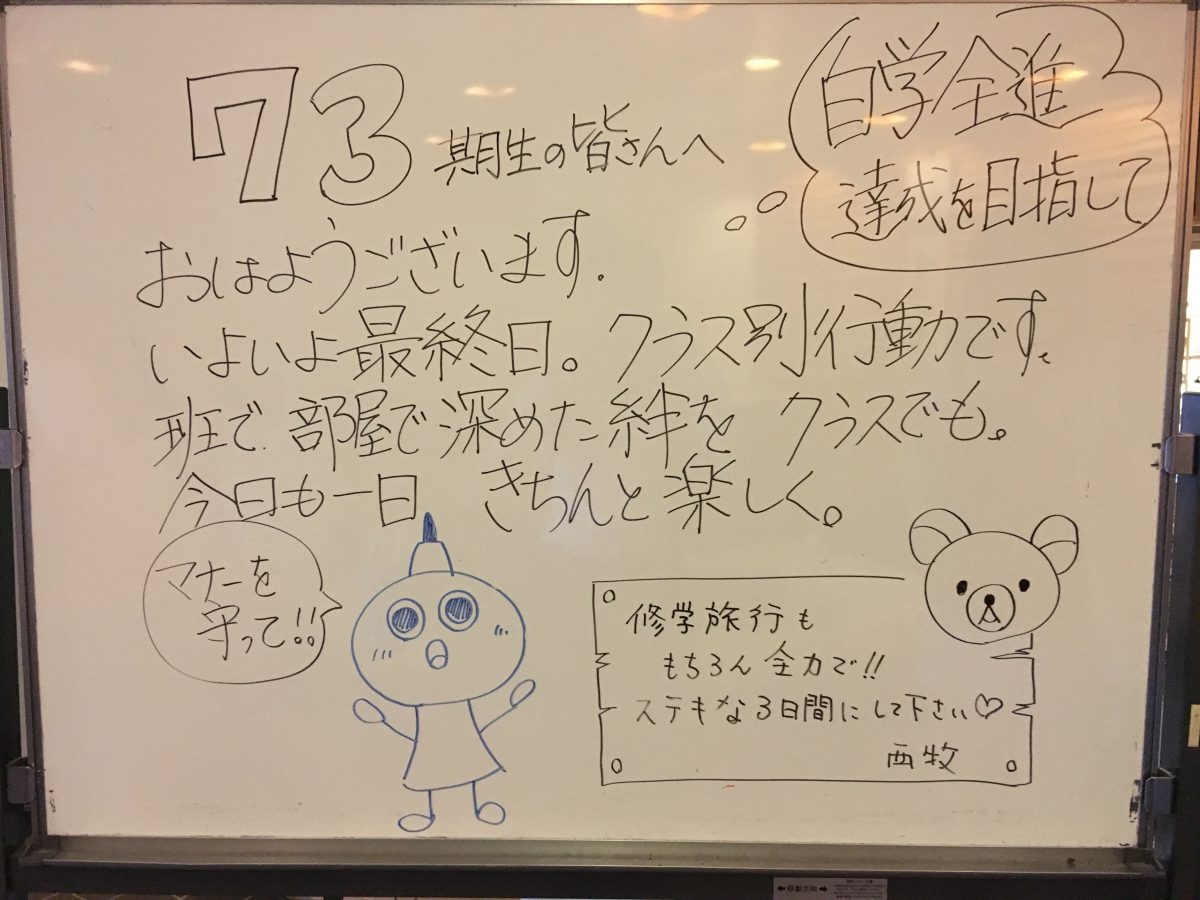 73期生の皆さんへ
自学全進
達成を目指して
おはようございます.
いよいよ最終日。クラス別行動です。
班で 部屋で深めた絆を クラスでも。
今日も一日 きちんと楽しく。
マナーを
守って!!
修学旅行も
もちろん全力で!!
ステキな3日間にして下さい♡
西牧
←移動方向→